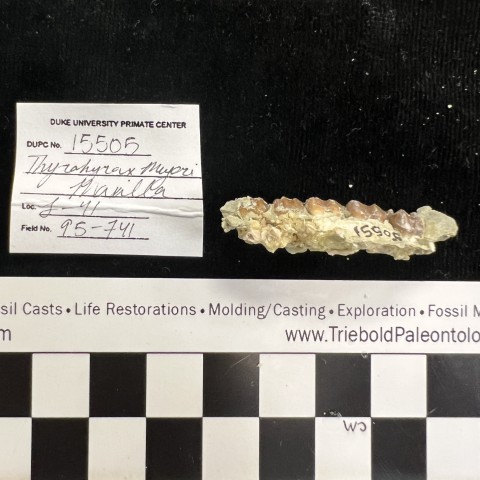 DUKE UNIVERSITY PRIMATE CENTER
DUPC No. 15505
Thyrohyrax Meyeri
Maxilla
Loc. L-41
Field No. 95-741
15505
sil Casts • Life Restorations • Molding/Casting • Exploration • Fossil M
m www.TrieboldPaleontolo
CM